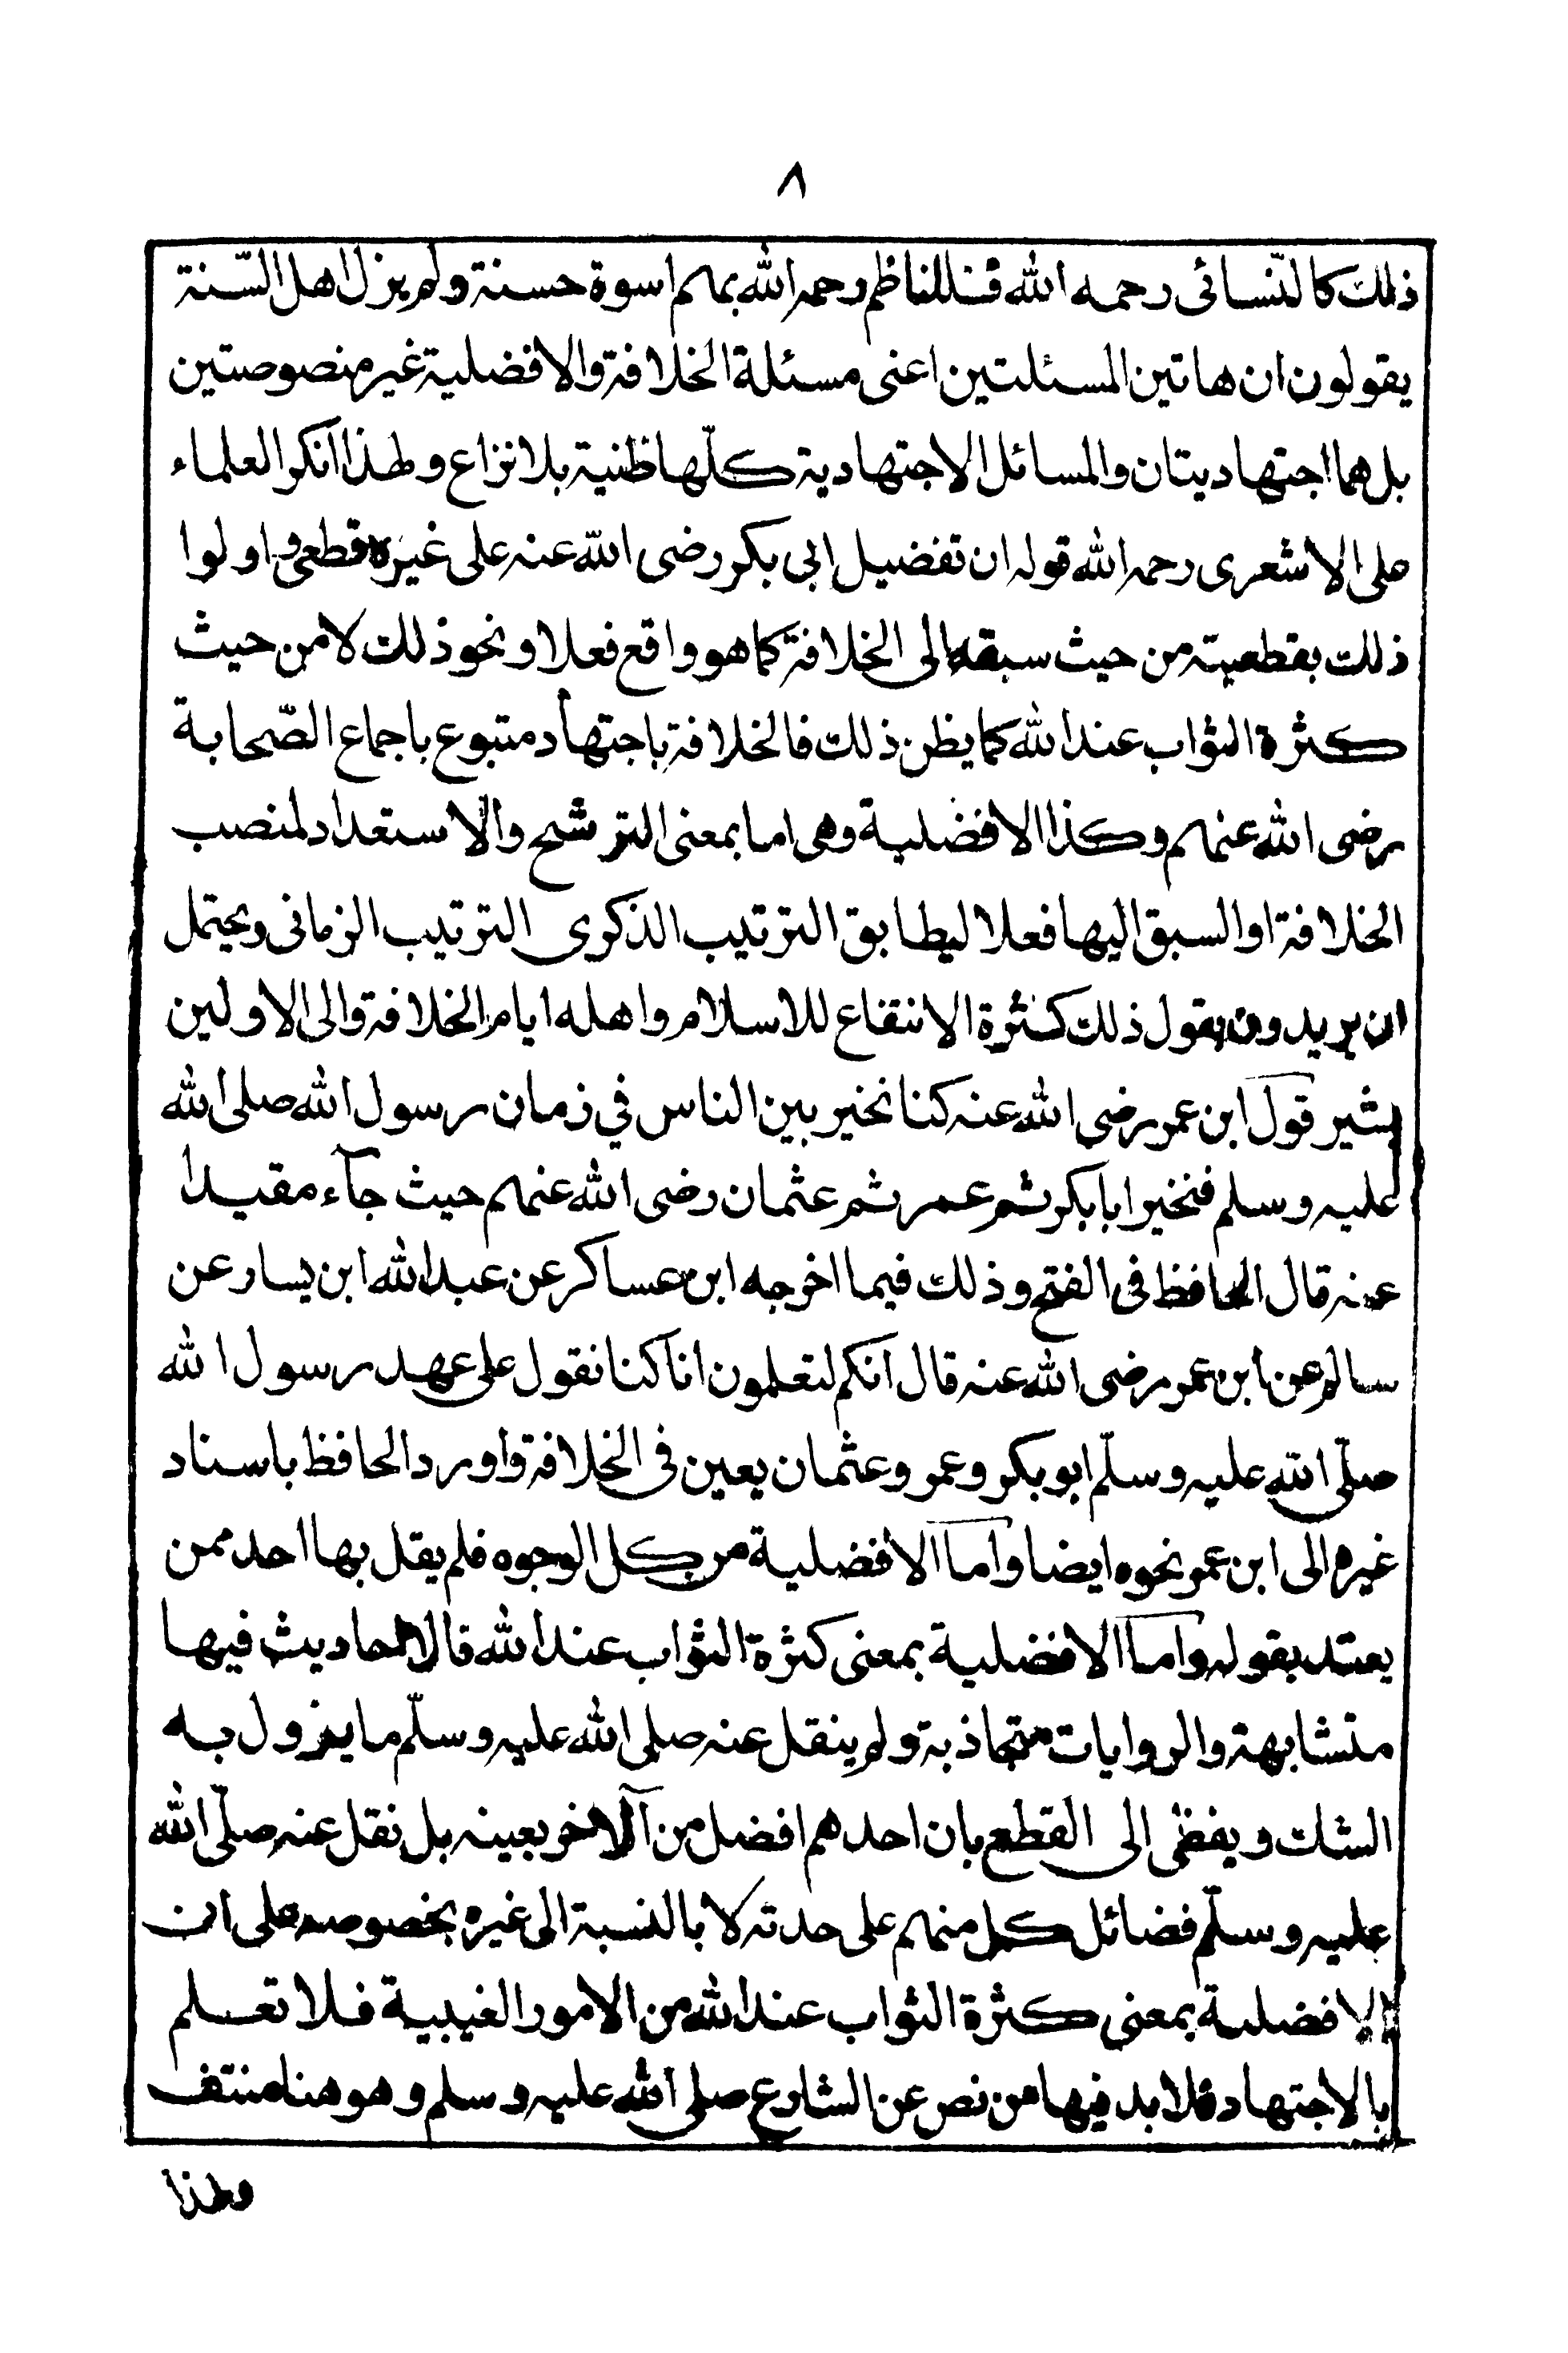 ٨
ذلك كالنّسائى رحمه الله فللناظم رحمه الله بهم اسوة حسنة ولم يزل اهل السّنة
يقولون ان هاتين المسئلتين اعنى مسئلة الخلافة والافضلية غير منصوصتين
بل هما اجتهاديتان والمسائل الاجتهادية كلّها ظنية بلا نزاع ولهذا انكر العلماء
على الاشعرى رحمه الله قوله ان تفضيل ابى بكر رضى الله عنه على غيره قطعى واولوا
ذلك بقطعيته من حيث سبقه الى الخلافة كما هو واقع فعلا ونحو ذلك لا من حيث
كثرة الثواب عند الله كما يظن ذلك فالخلافة باجتهاد متبوع باجماع الصّحابة
رضى الله عنهم وكذا الافضلية وهى اما بمعنى الترشح والاستعداد لمنصب
الخلافة او السبق اليها فعلا ليطابق الترتيب الذكرى الترتيب الزمانى ويحتمل
ان يريدون بقول ذلك كثرة الانتفاع للاسلام واهله ايام الخلافة والى الاولين
يشير قول ابن عمر رضى الله عنه كنا نخير بين الناس في زمان رسول الله صلى الله
عليه وسلم فنخير ابا بكر ثم عمر ثم عثمان رضى الله عنهم حيث جآء مقيدا
عنه قال الحافظ فى الفتح وذلك فيما اخرجه ابن عساكر عن عبد الله ابن يسار عن
سالم عن ابن عمر رضى الله عنه قال انكم لتعلمون انا كنا نقول على عهد رسول الله
صلّى الله عليه وسلّم ابو بكر وعمر وعثمان يعين فى الخلافة واورد الحافظ باسناد
غيره الى ابن عمر نحوه ايضا واما الافضلية من كل الوجوه فلم يقل بها احد ممن
يعتد بقوله واما الافضلية بمعنى كثرة الثواب عند الله فالاحاديث فيها
متشابهة والروايات متجاذبة ولم ينقل عنه صلى الله عليه وسلّم ما يزول به
الشك ويفضى الى القطع بان احدهم افضل من الاخر بعينه بل نقل عنه صلّى الله
عليه وسلّم فضائل كل منهم على حدته لا بالنسبة الى غيره بخصوصه على ان
الافضلية بمعنى كثرة الثواب عند الله من الامور الغيبية فلا تعلم
بالاجتهاد فلا بد فيها من نص عن الشارع صلى الله عليه وسلم وهو هنا منتف
ولهذا